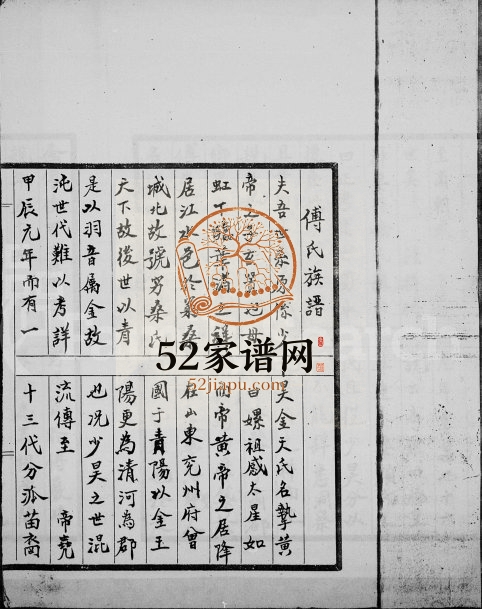 傅氏族譜
夫吾世系原係少昊金天氏名摯黃
帝之子玄囂也母曰嫘祖感太星如
虹下臨華渚之而帝黃帝之居降
居江水邑於窮桑在山東兗州府曾
城北故號窮桑氏國于青陽以金王
天下故後世以青陽更為清河為郡
是以羽音屬金故也况少昊之世混
沌世代難以考詳流傳至 帝堯
甲辰元年而有一十三代分派苗裔
52家谱网
52jiapu.com